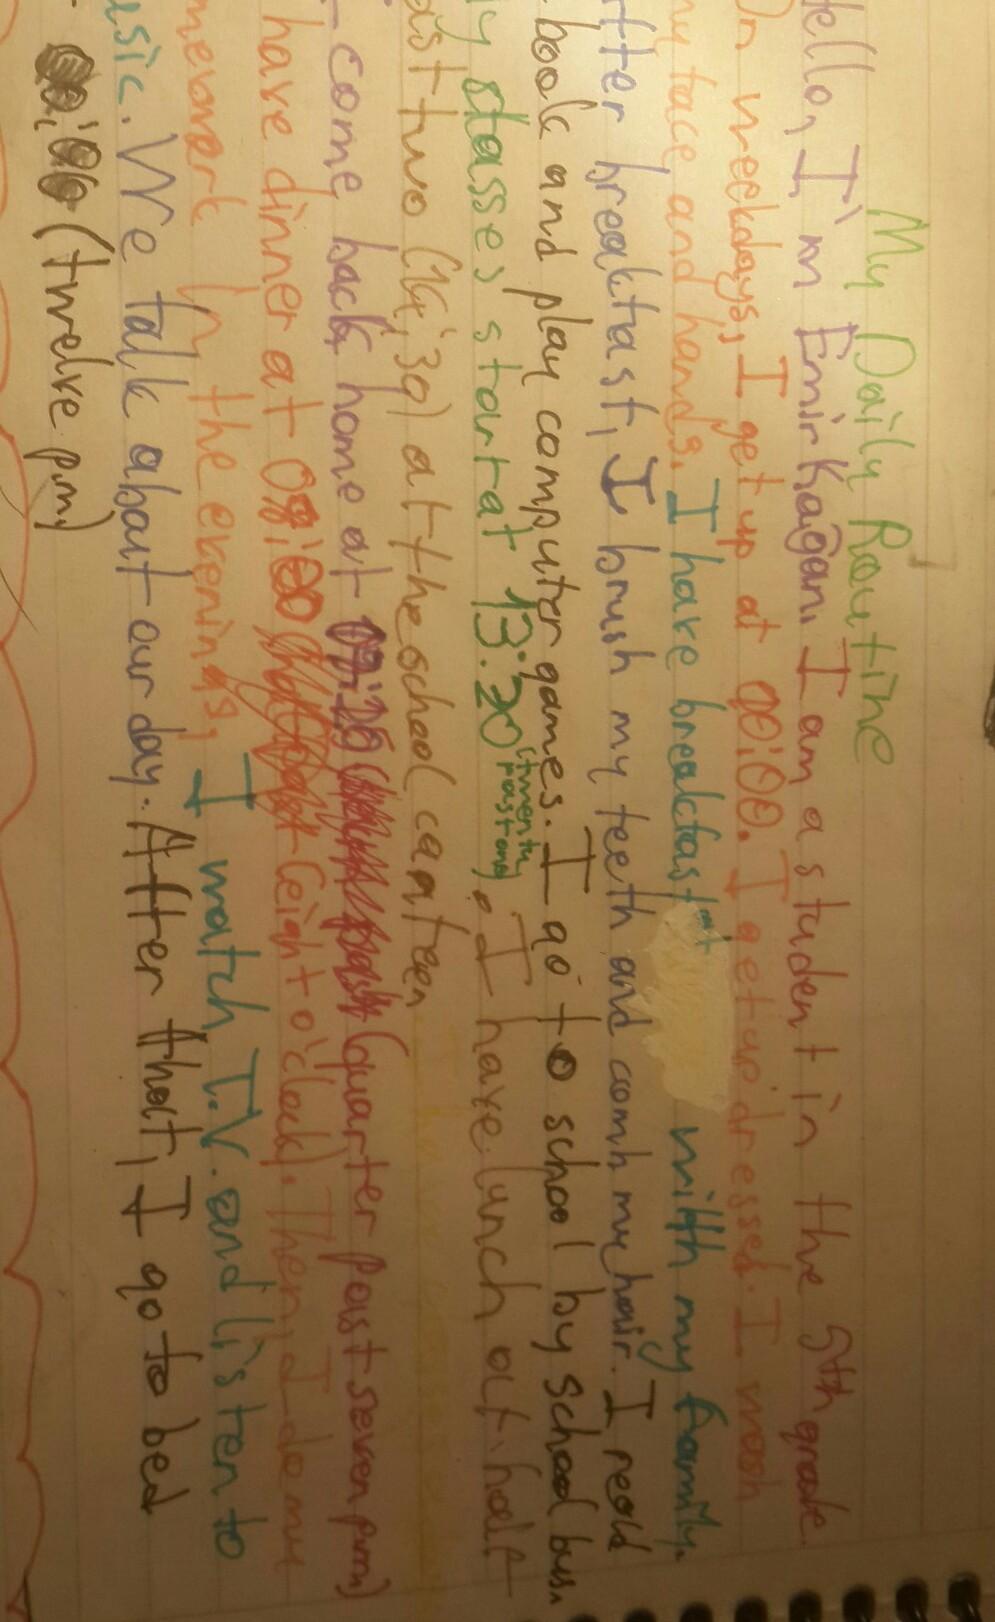 My Daily Routine
ello, I'm Emir Kağan. I am a student in the 5th grade.
On weekdays, I get up at 00:00. I get up dressed. I wash
my face and hands. I have breakfast with my family.
fter breakfast, I brush my teeth and comb my hair. I read
book and play computer games. I go to school by school bus.
y classes start at 13:20 (twenty past one). I have lunch at half
past two (14:30) at the school canteen
I come back home at (quarter past seven pm)
have dinner at 08:00 (eight o'clock). Then, I do my
mework In the evenings, I watch T.V. and listen to
usic. We talk about our day. After that, I go to bed
(twelve pm)